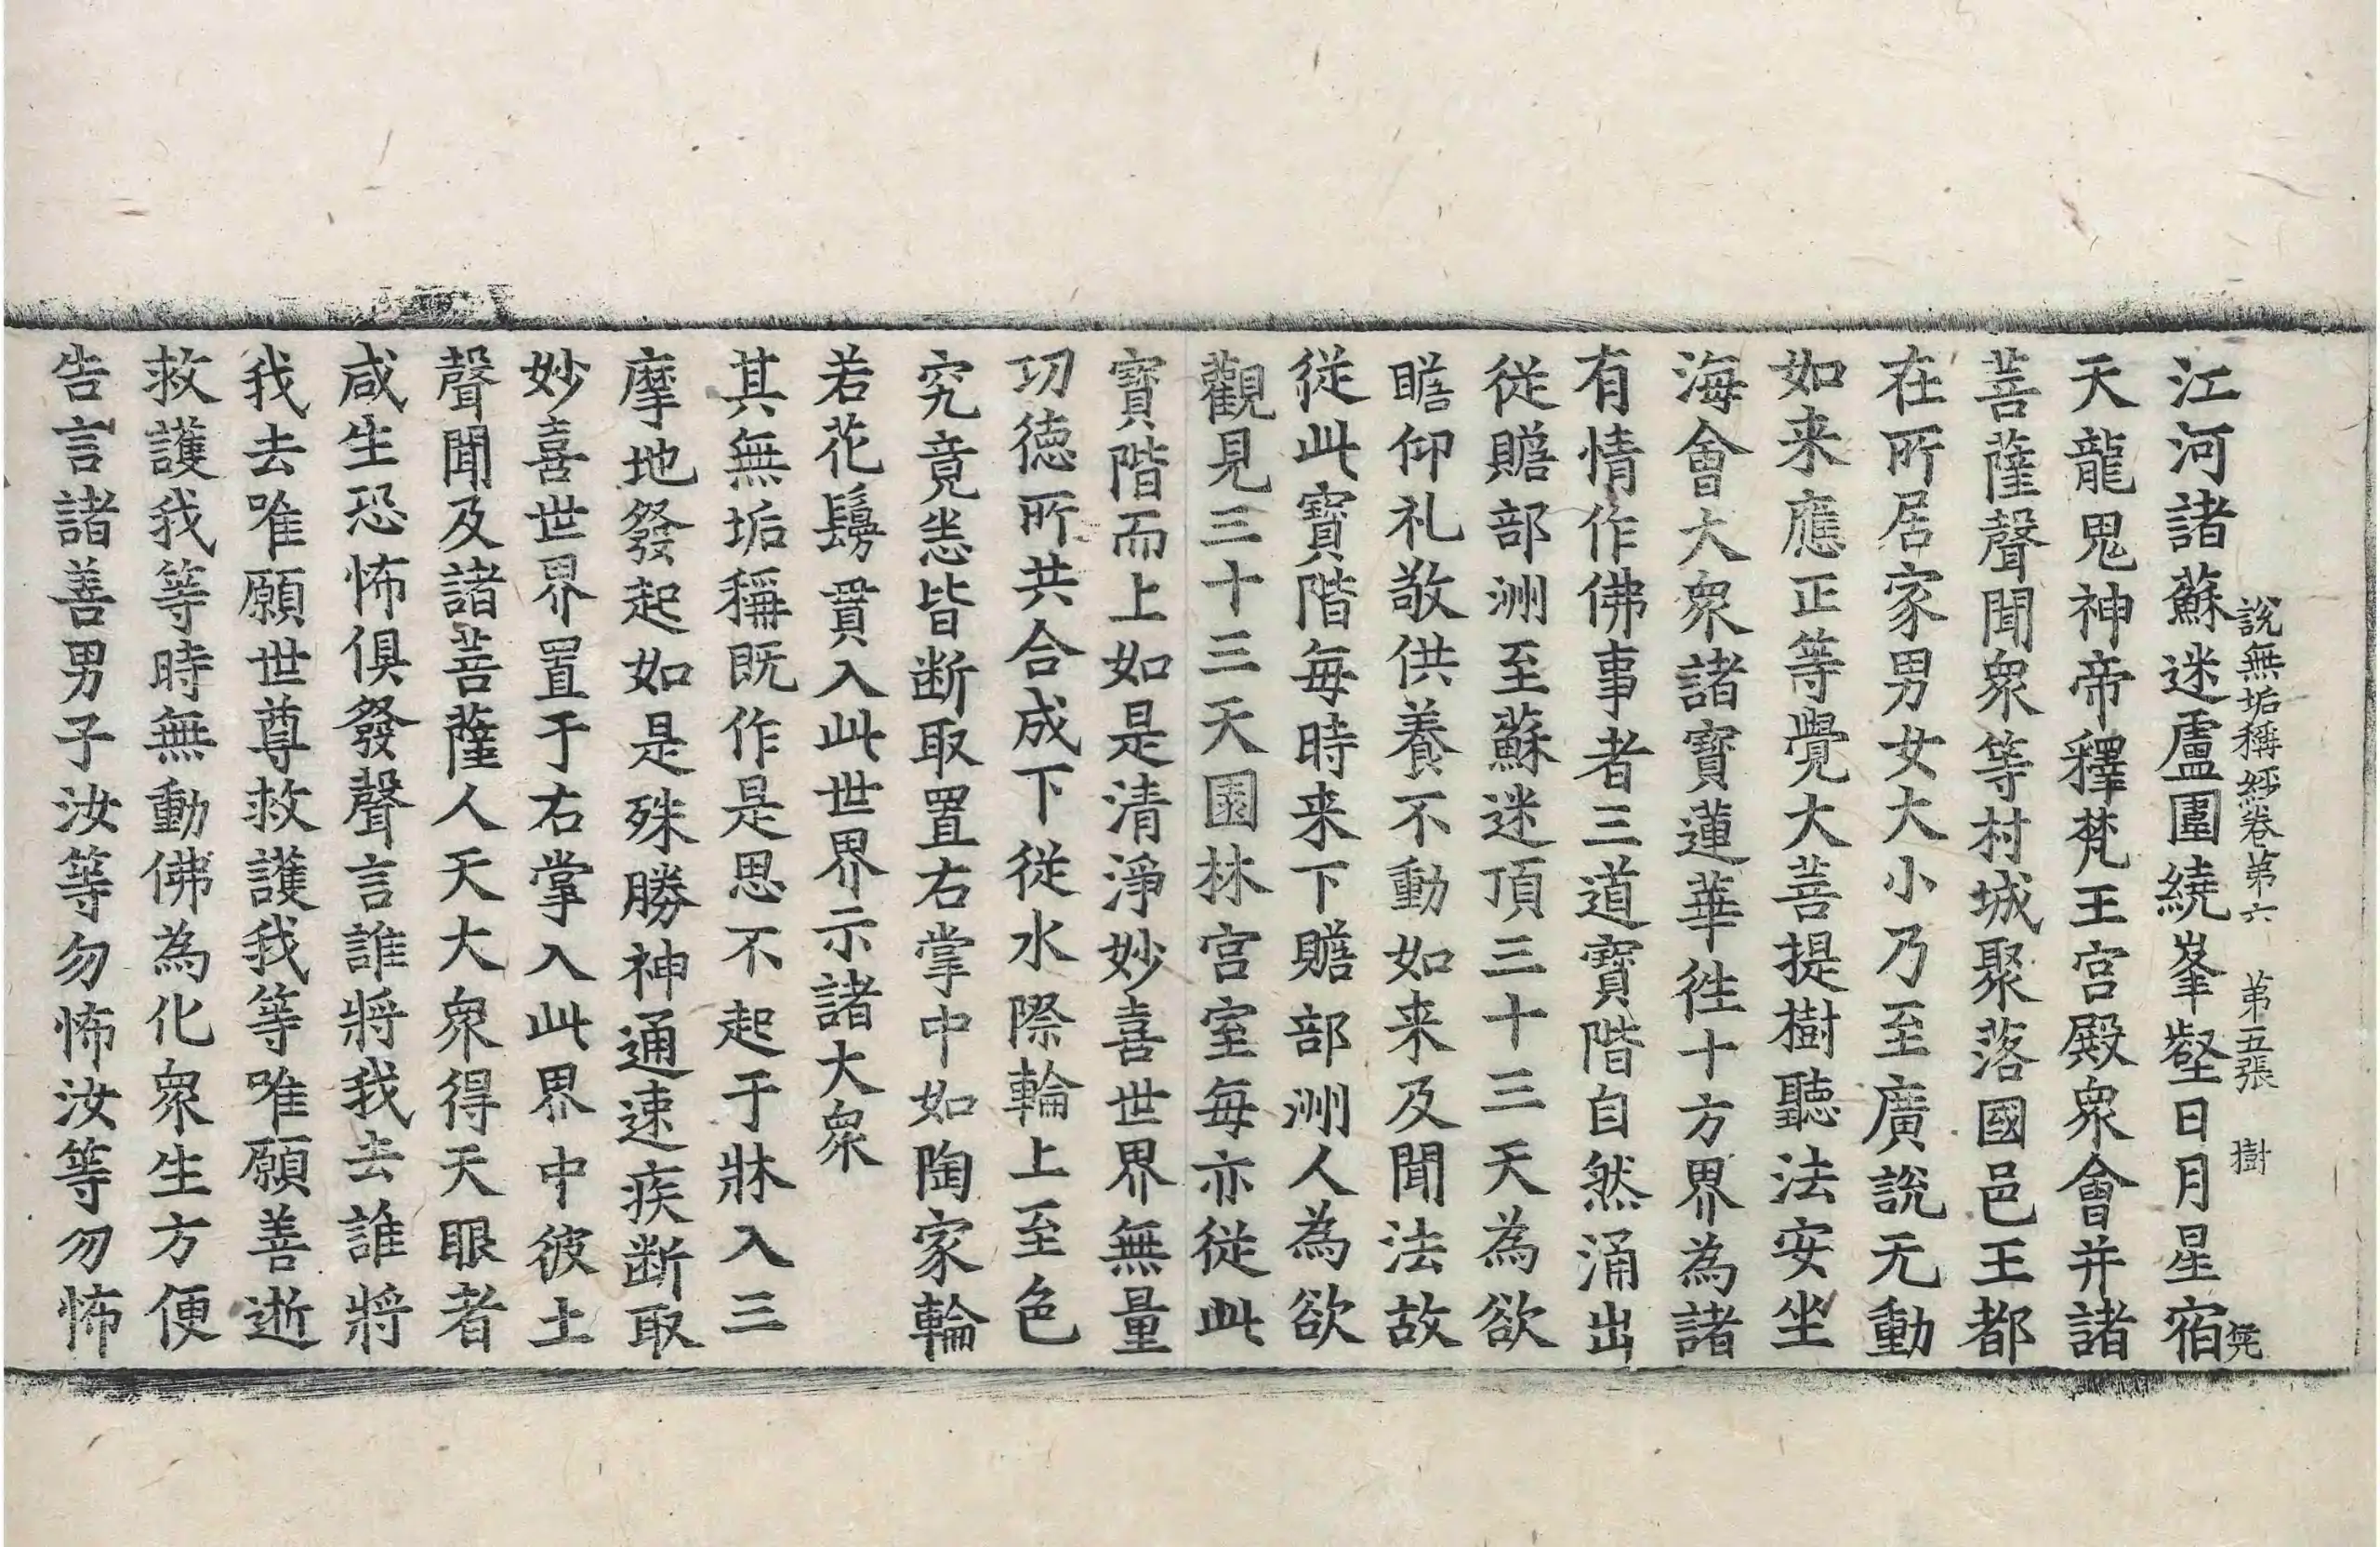 說無垢稱經卷第六 第五張 樹
江河諸蘇迷盧圍繞峯壑日月星宿
天龍鬼神帝釋梵王宮殿衆會并諸
菩薩聲聞衆等村城聚落國邑王都
在所居家男女大小乃至廣說无動
如来應正等覺大菩提樹聽法安坐
海會大衆諸寶蓮華徃十方界為諸
有情作佛事者三道寶階自然涌出
從贍部洲至蘇迷頂三十三天為欲
瞻仰礼敬供養不動如来及聞法故
從此寶階每時来下贍部洲人為欲
觀見三十三天園林宮室每亦從此
寶階而上如是清淨妙喜世界無量
功德所共合成下從水際輪上至色
究竟悉皆断取置右掌中如陶家輪
若花鬘貫入此世界示諸大衆
其無垢稱既作是思不起于牀入三
摩地發起如是殊勝神通速疾断取
妙喜世界置于右掌入此界中彼土
聲聞及諸菩薩人天大衆得天眼者
咸生恐怖俱發聲言誰將我去誰將
我去唯願世尊救護我等唯願善逝
救護我等時無動佛為化衆生方便
告言諸善男子汝等勿怖汝等勿怖